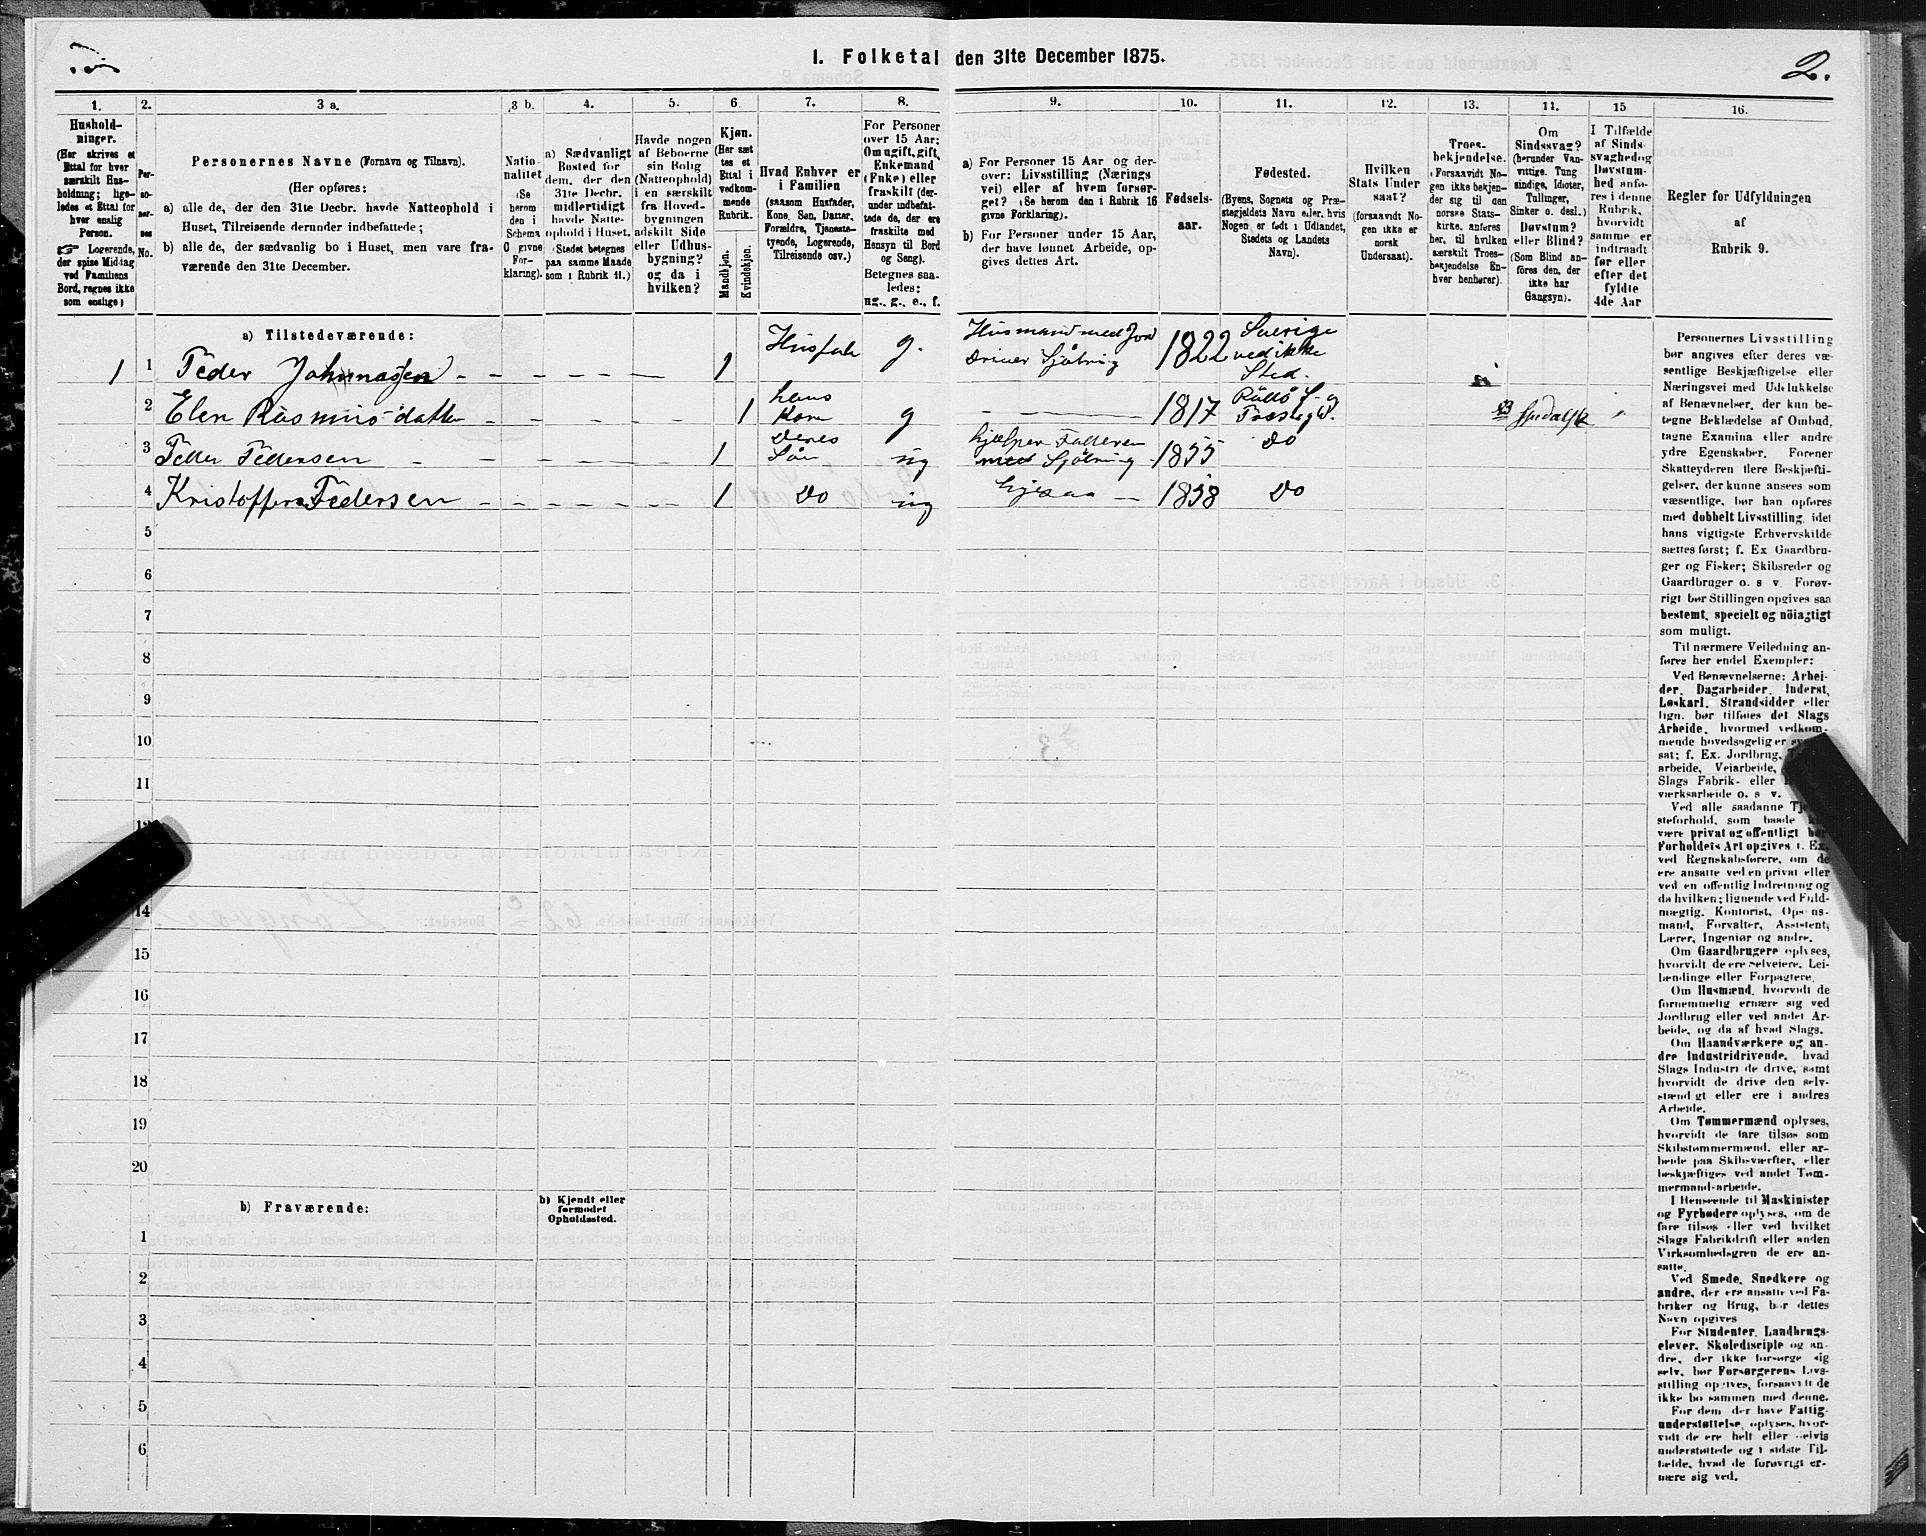 1. Folketal den 31te December 1875.
2.
1.
2.
3 a.
3 b.
4.
5.
6.
7.
8.
9.
10.
11.
12.
13.
14.
15
16.
Hushold-
ninger.
(Her skrives et
Ettal for hver
særskilt Hus-
holdning; lige-
ledes et Ettal for
hver enslig
Person.
Logerende,
der spise Middag
ved Familiens
Bord, regnes ikke
som enslige)
Per-
so-
ner-
nes
No.
Personernes Navne (Fornavn og Tilnavn).
(Her opføres:
a) alle de, der den 31te Decbr. havde Natteophold i
Huset, Tilreisende derunder indbefattede;
b) alle de, der sædvanlig bo i Huset, men vare fra-
værende den 31te December.
Natio-
nalitet
(Se
herom
den i
Schema
O givne
For-
klaring).
a) Sædvanligt
Bosted for
dem, der den
31te Decbr.
midlertidigt
havde Natte-
ophold i Huset.
(Stedet betegnes
paa samme Maade
som i Rubrik 11.)
Havde nogen
af Beboerne
sin Bolig
(Natteophold)
i en særskilt
fra Hoved-
bygningen
adskilt Side
eller Udhus-
bygning?
og da i
hvilken?
Kjøn.
(Her sæt
tes et
Ettal i
vedkom-
mende
Rubrik.
Mandkjøn.
Kvindekjøn.
Hvad Enhver er
i Familien
(saasom Husfader,
Kone, Søn, Datter,
Forældre, Tjeneste-
tyende, Logerende,
Tilreisende osv.)
For Personer
over 15 Aar:
Om ugift, gift,
Enkemand
(Enke) eller
fraskilt (der-
under indbefat-
tede de, der ere
fraskilte med
Hensyn til Bord
og Seng).
Betegnes saa-
ledes:
ug., g., e., f.
a) For Personer 15 Aar og der-
over: Livsstilling (Nærings
vei) eller af hvem forsør-
get? (Se herom den i Rubrik 16
givne Forklaring).
b) For Personer under 15 Aar,
der have lønnet Arbeide, op-
gives dettes Art.
Fødsels-
aar.
Fødested.
(Byens, Sognets og Præ-
stegjeldets Navn eller, hvis
Nogen er født i Udlandet,
Stedets og Landets
Navn).
Hvilken
Stats Under
saat?
(forsaavidt No-
gen ikke er
norsk
Undersaat).
Troes-
bekjendelse.
(Forsaavidt No-
gen ikke bekjen-
der sig til den
norske Stats-
kirke, anføres
her, til hvilken
særskilt Troes-
bekjendelse En-
hver henhører).
Om
Sindssvag?
(herunder Van-
vittige, Tung
sindige, Idioter,
Tullinger,
Sinker o. desl.)
Døvstum?
eller Blind?
(Som Blind an-
føres den, der
ikke har
Gangsyn).
I Tilfælde
af Sinds-
svaghed og
Døvstum-
hed anfø-
res i denne
Rubrik,
hvorvidt
samme er
indtraadt
før eller
efter det
fyldte
4de Aar
Regler for Udfyldningen
af
Rubrik 9.
a) Tilstedeværende:
1 1 Peder 1 Husfad g. Husmand med Jord 1822 Sverige
driver Sjöbring ved ikke
Sted.
2 Elen Rasmusdatter 1 hans Kone g 1817
3 Peder Pedersen 1 Deres Sön ug hjælper Faderen 1855 Do
med Sjöbring
4 Kristoffer Pedersen 1 Do ug 1858 Do
5
6
7
8
9
10
11
14
15
16
17
18
19
20
b) Fraværende:
b) Kjendt eller
formodet
Opholdssted.
1
2
3
4
5
6
Personernes Livsstilling
bør angives efter deres væ-
sentlige Beskjæftigelse eller
Næringsvei med Udelukkelse
af Benævnelser, der kun be-
tegne Beklædelse af Ombud,
tagne Examina eller andre
ydre Egenskaber. Forener
Skatteyderen flere Beskjæfti-
gelser, der kunne ansees som
væsentlige, bør han opføres
med dobbelt Livsstilling, idet
hans vigtigste Erhvervskilde
sættes først; f. Ex Gaardbru-
ger og Fisker; Skibsreder og
Gaardbruger o. s v. Forøv-
rigt bør Stillingen opgives saa
bestemt, specielt og nöiagtigt
som muligt.
Til nærmere Veiledning an-
føres her endel Exempler:
Ved Benævnelserne: Arbei-
der, Dagarbeider, Inderst,
Løskarl, Strandsidder eller
lign. bør tilføies det Slags
Arbeide, hvormed vedkom-
mende hovedsagelig er
sat; f. Ex. Jordbrug,
arbeide, Veiarbeide,
Slags Fabrik- eller
værksarbeide o. s v.
Ved alle saadanne
steforhold, som baade
være privat og offentligt bør
Forholdets Art opgives f. Ex.
ved Regnskabsførere, om de
ere ansatte ved en privat eller
ved en offentlig Indretning og
da hvilken; lignende ved Fuld-
mægtig, Kontorist, Opsyns-
mand, Forvalter, Assistent,
Lærer, Ingeniør og andre.
Om Gaardbrugere oplyses,
hvorvidt de ere Selveiere, Lei-
lændinge eller Forpagtere.
Om Husmænd, hvorvidt de
fornemmelig ernære sig ved
Jordbrug eller ved andet Ar-
beide, og da af hvad Slags.
Om Haandværkere og an-
dre Industridrivende, hvad
Slags Industri de drive, samt
hvorvidt de drive den selv-
stændigt eller ere i andres
Arbeide.
Om Tømmermænd oplyses,
hvorvidt de fare tilsøs som
Skibstømmermænd, eller ar-
beide paa Skibsværfter, eller
beskjæftiges ved andet Tøm-
mermandsarbeide.
I Henseende til Maskinister
og Fyrbødere oplyses, om de
fare tilsøs eller ved hvilket
Slags Fabrikdrift eller anden
Virksomhedsgren de ere an-
satte.
Ved Smede, Snedkere og
andre, der ere ansatte ved Fa-
briker og Brug, bør dettes
Navn opgives
For Studenter, Landbrugs-
elever, Skoledisciple og an-
dre, der ikke forsørge sig
selv, bør Forsørgerens Livs-
stilling opgives, forsaavidt de
ikke bo sammen med denne.
For dem der have Fattig-
understøttelse, oplyses, hvor-
vidt de ere helt eller delvis
understøttede og i sidste Til-
fælde, hvad de forøvrigt er-
nære sig ved.